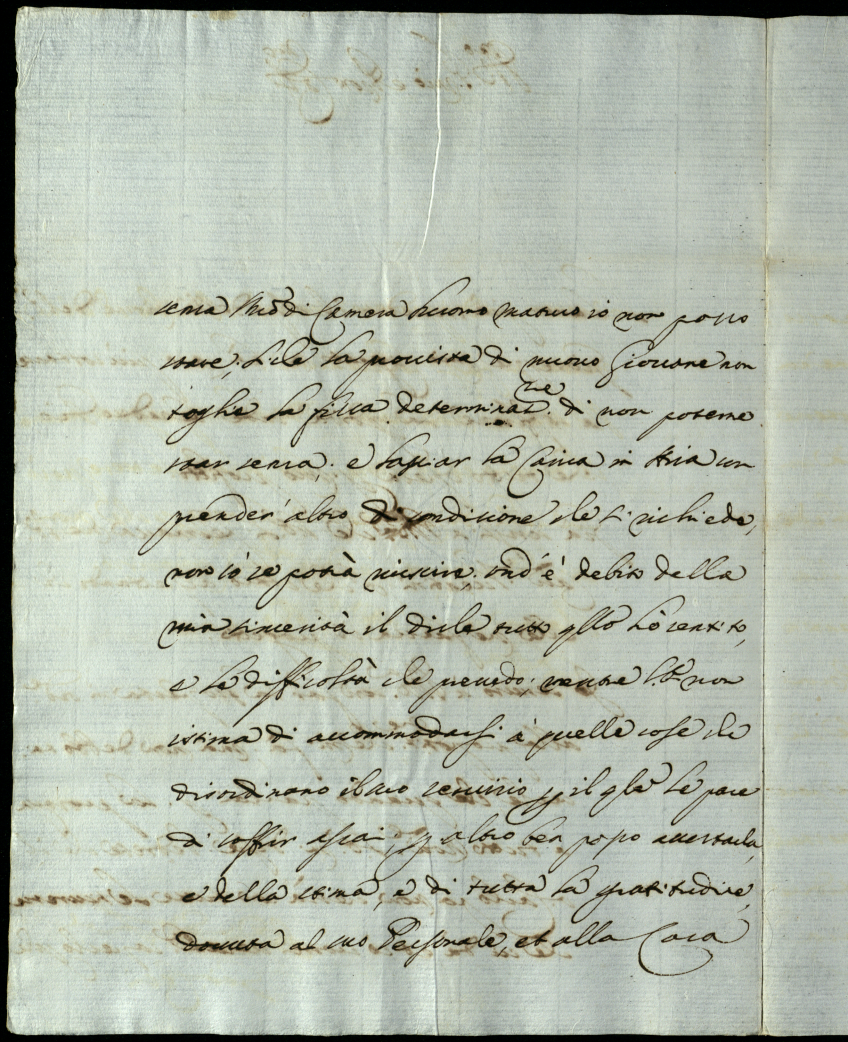 senza M.ro di Camera huomo maturo io non posso
stare; si che la provista di nuovo Giovane non
toglie la fissa determinaz.ne di non poterne
star senza; e lasciar la Carica in Aria con
prender' altro di condizione che si richiede,
non sò se potrà riuscire; ond' è debito della
mia sincerità il dirle tutto q.llo hò sentito,
e le difficoltà che prevedo; mentre non
istima di accommodarsi à quelle cose che
disordinano il suo servizio p il q.le le pare
di soffrir assai; p altro ben posso accertarla,
e della stima, e di tutta la gratitudine,
dovuta al suo Personale, et alla Casa